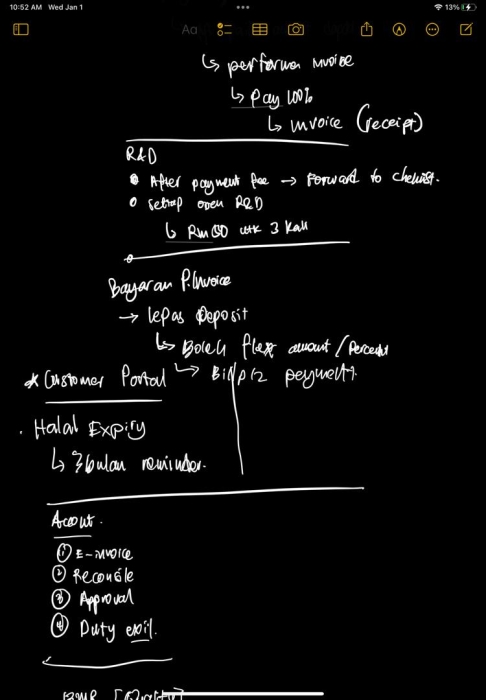 10:52 AM Wed Jan 1
13%
Aa
↳ performa invoice
↳ Pay 100%
↳ invoice (receipt)
R&D
After payment fee → Forward to chemist.
Setiap R&D
↳ RM utk 3 Kali
Bayaran P.Invoice
→ lepas deposit
↳ Boleh flex amount / Percent
↳ payment
* Customer Portal
Halal Expiry
↳ 3 bulan reminder.
Account.
① E-invoice
② Reconcile
③ Approval
④ Duty